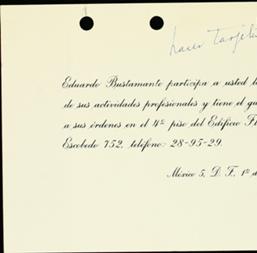 hacer
Eduardo Bustamante participa a usted
de sus actividades profesionales y tiene el
a sus órdenes en el 4º piso del Edificio
Escobedo 752, teléfono: 28-95-29.
México 5, D. F. 1º